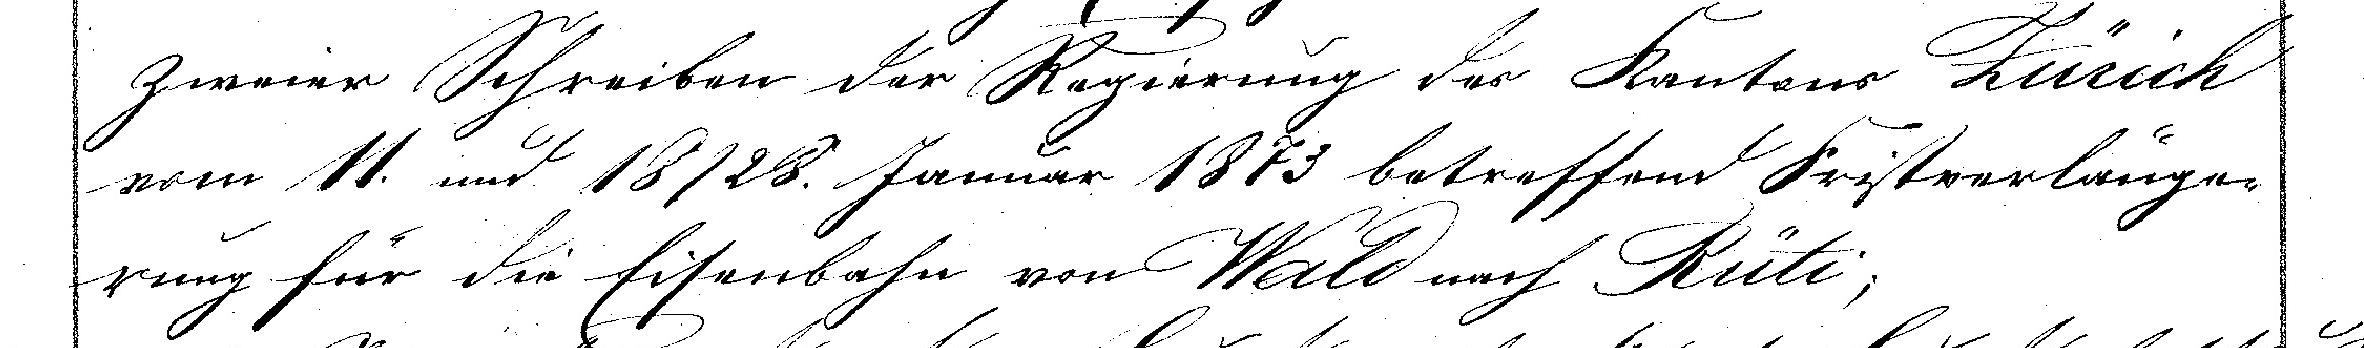 zweier Schreiben der Regierung des Kantons Zürich
vom 11. und 18/28. Januar 1873 betreffend Fristverlänge-
rung für die Eisenbahn von Wald nach Rüti;